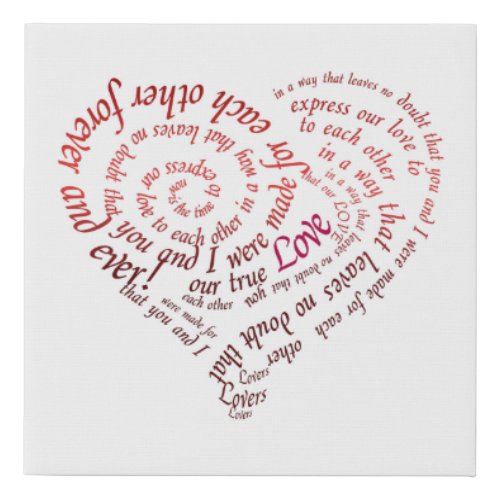 now is the time to express our love to each other in a way that leaves no doubt that you and I were made for each other forever and ever!
in a way that leaves no doubt that you and I were made for each other
express our love to
to each other
in a way that leaves no doubt that
in a way that leaves no doubt that you
that our LOVE
our true Love
each other
were made for
that you and I
Lovers
Lovers
Lovers